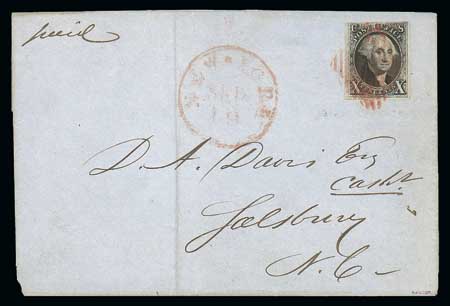 paid
POST OFFICE
X X
NEW-YORK
SEP
19
D. A. Davis Esq
Cash.r
Salsbury
N. C.